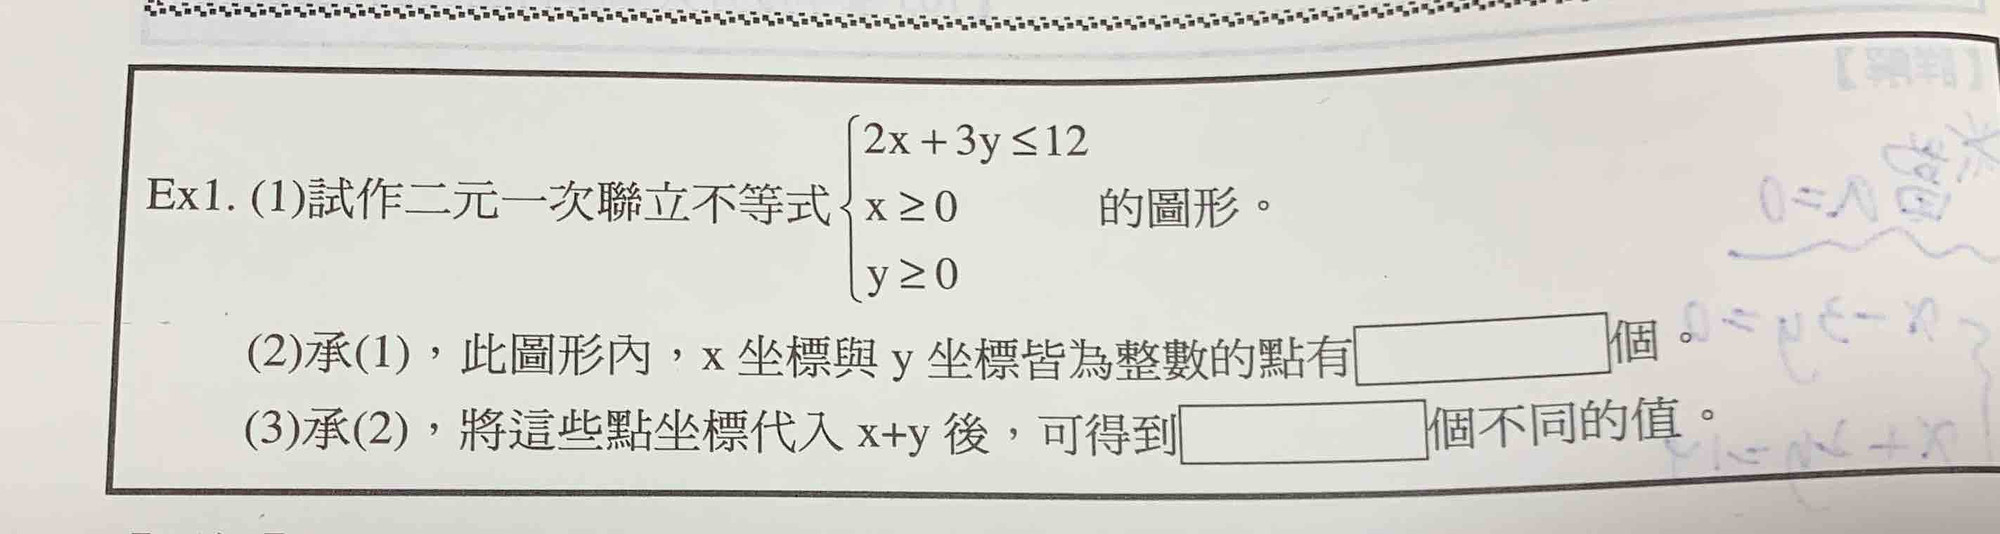 Ex1. (1)試作二元一次聯立不等式 { 2x + 3y ≤ 12
x ≥ 0
y ≥ 0 的圖形。
(2)承(1)，此圖形內，x 坐標與 y 坐標皆為整數的點有 個。
(3)承(2)，將這些點坐標代入 x+y 後，可得到 個不同的值。